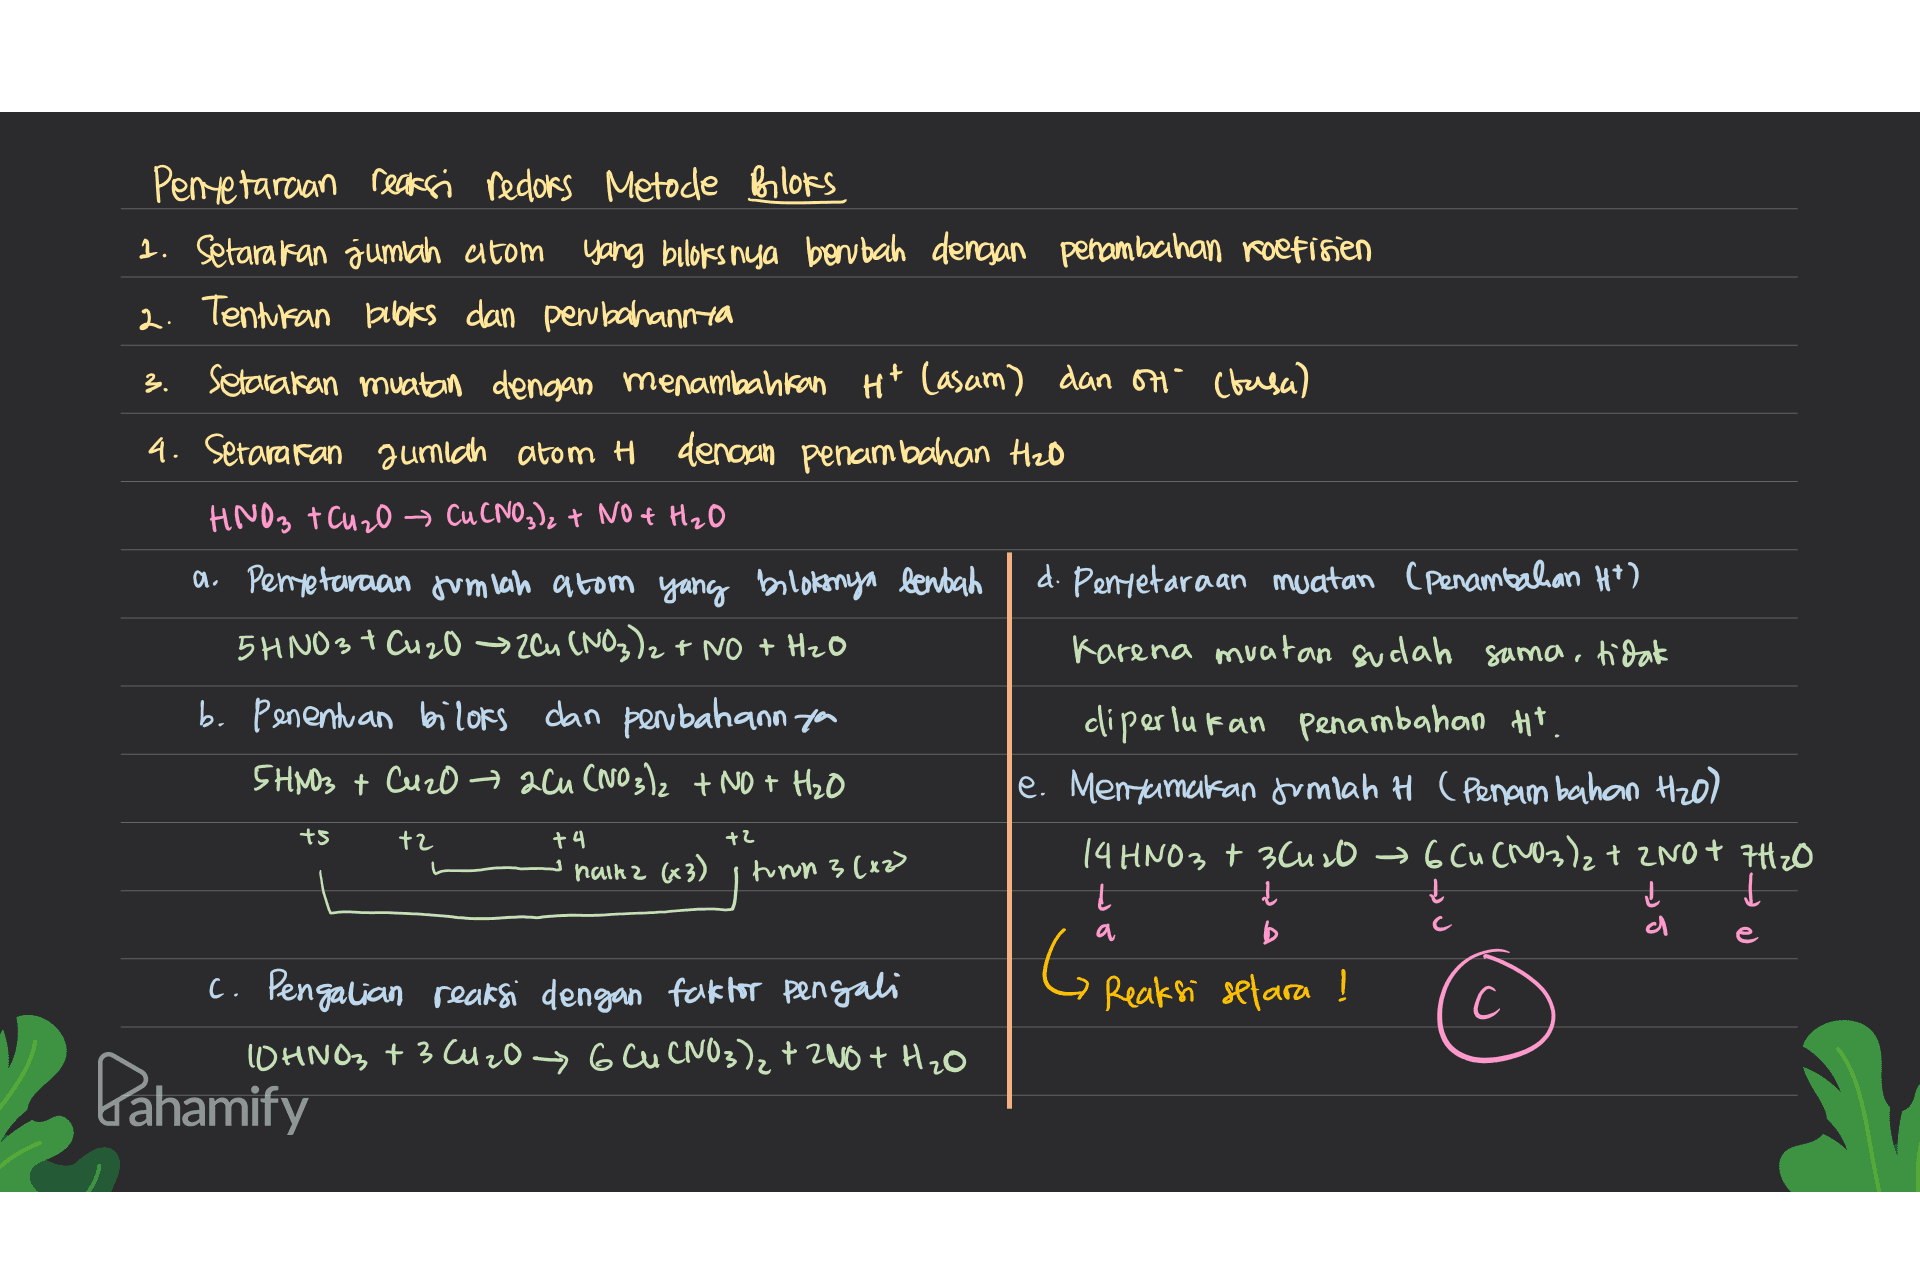 Penyetaraan reaksi redoks Metode Biloks
1. Setarakan jumlah atom yang biloksnya berubah dengan penambahan koefisien
2. Tentukan biloks dan perubahannya
3. Setarakan muatan dengan menambahkan H⁺ (asam) dan OH⁻ (basa)
4. Setarakan jumlah atom H dengan penambahan H₂O
HNO₃ + Cu₂O → Cu(NO₃)₂ + NO + H₂O
a. Penyetaraan jumlah atom yang biloksnya berubah
5HNO₃ + Cu₂O → 2Cu(NO₃)₂ + NO + H₂O
b. Penentuan biloks dan perubahannya
5HNO₃ + Cu₂O → 2Cu(NO₃)₂ + NO + H₂O
+5 +2 +4 +2
naik 2 (x3) turun 3 (x2)
c. Pengalian reaksi dengan faktor pengali
10HNO₃ + 3Cu₂O → 6Cu(NO₃)₂ + 2NO + H₂O
d. Penyetaraan muatan (penambahan H⁺)
Karena muatan sudah sama, tidak
diperlukan penambahan H⁺.
e. Menyamakan jumlah H (Penambahan H₂O)
14HNO₃ + 3Cu₂O → 6Cu(NO₃)₂ + 2NO + 7H₂O
a b c d e
Reaksi setara !
C
Pahamify